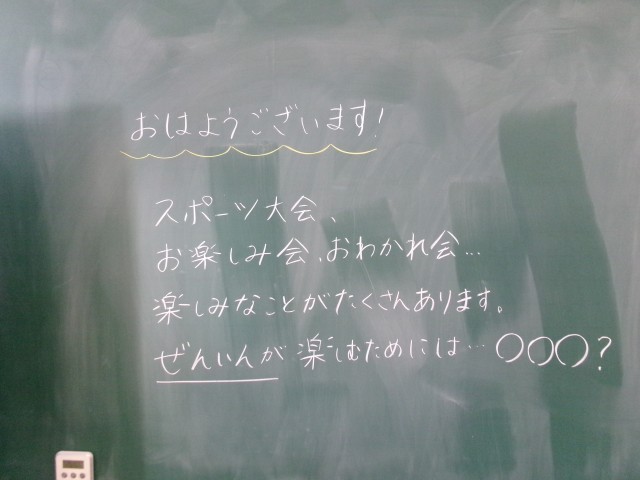 おはようございます!
スポーツ大会、
お楽しみ会、おわかれ会…
楽しみなことがたくさんあります。
ぜんいんが楽しむためには…〇〇〇?